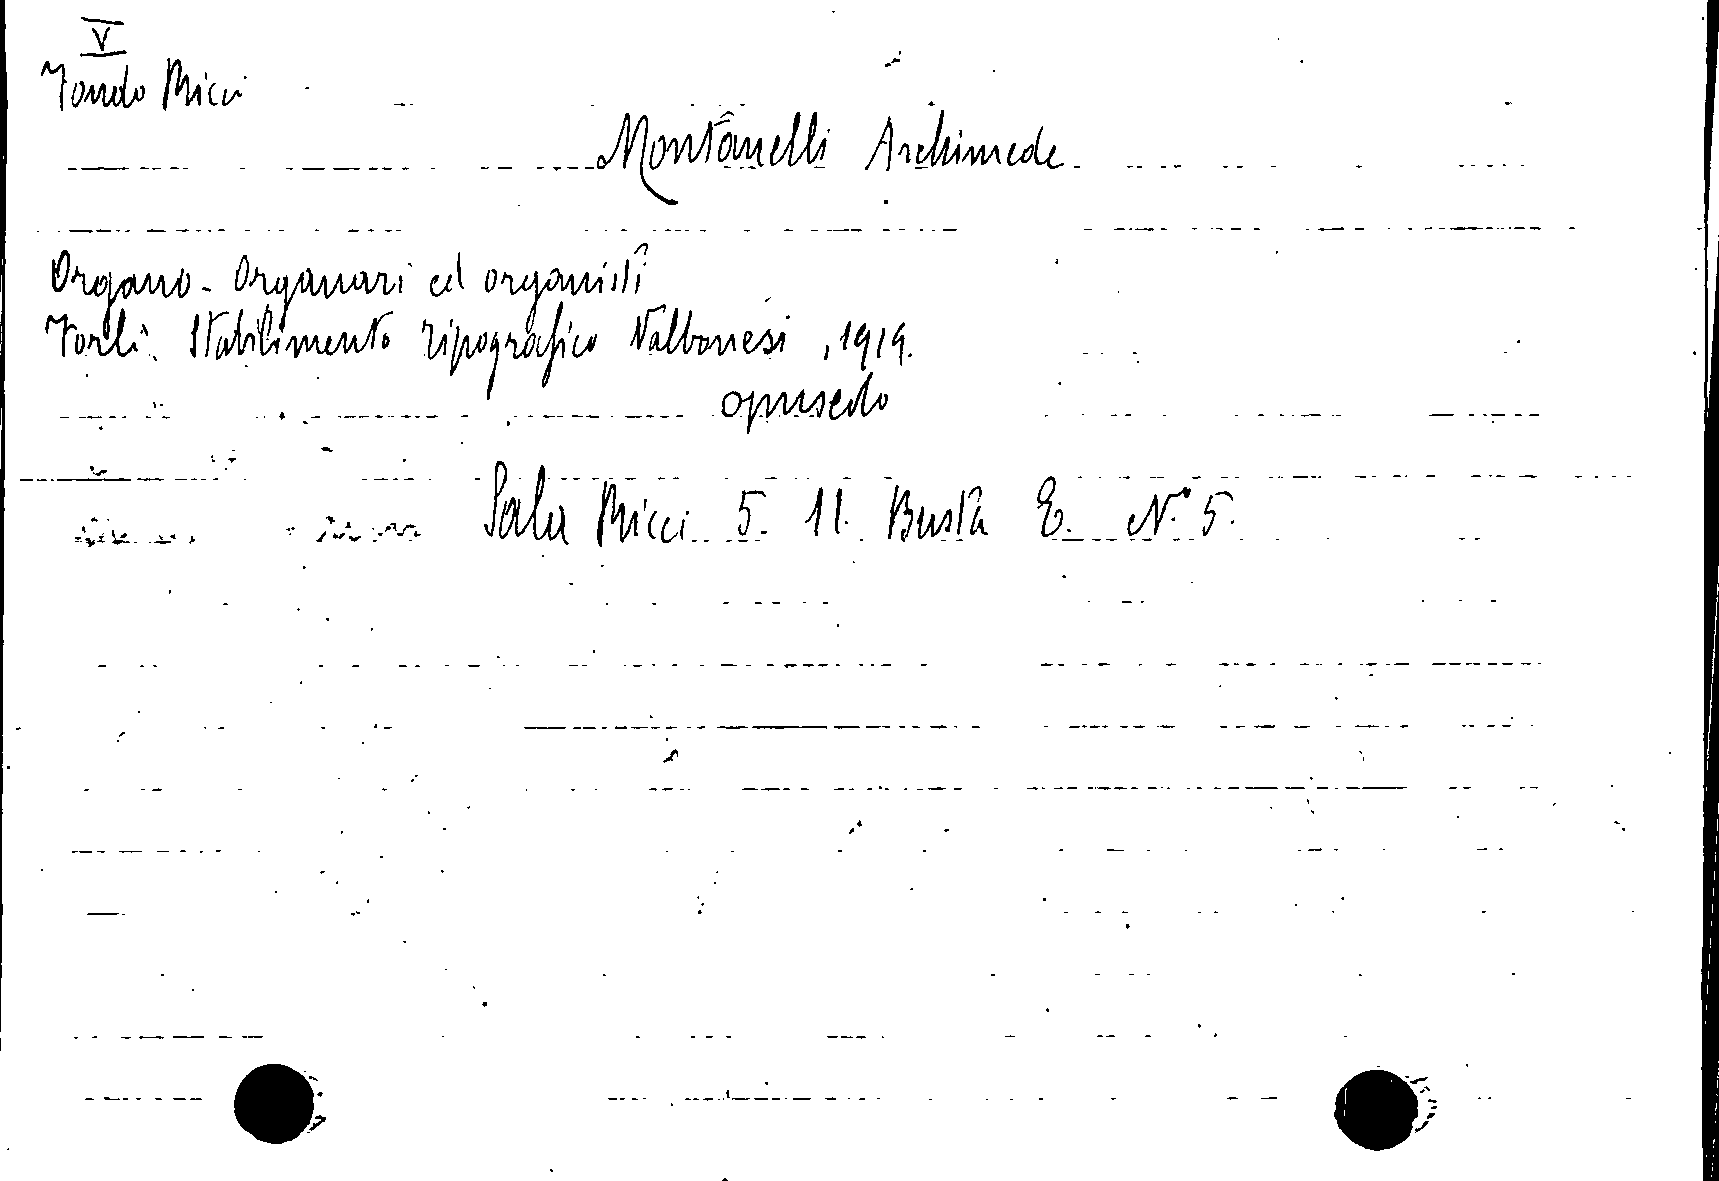 V
Fondo Ricci
Montanelli Archimede
Organo - Organari ed organisti
Forlì. Stabilimento tipografico Valbonesi, 1919.
opuscolo
Sala Ricci 5. 11. Busta E. N.° 5.